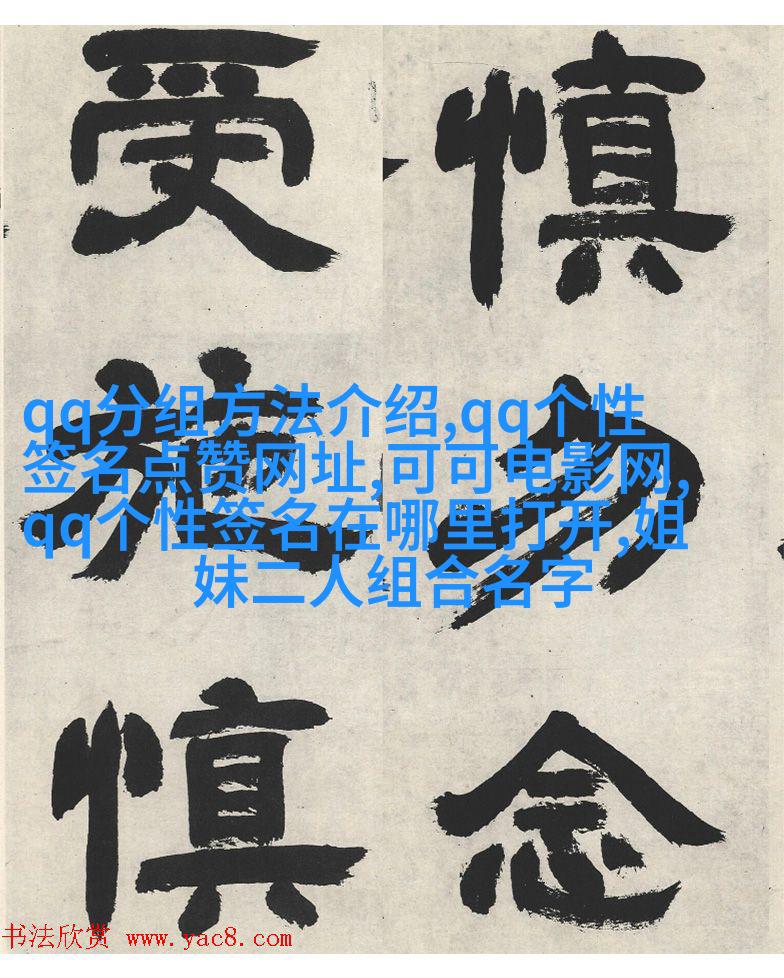 慎勿念
受施慎
qq分组方法介绍,qq个性
签名点赞网址,可可电影网,
qq个性签名在哪里打开,姐
妹二人组合名字
书法欣赏 www.yac8.com